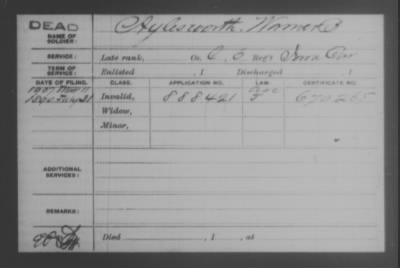 DEAD
NAME OF SOLDIER: Aylesworth, Warner
SERVICE: Late rank, Co. C, 6 Reg't Iowa Cav
TERM OF SERVICE: Enlisted , 1 Discharged , 1
DATE OF FILING. CLASS. APPLICATION NO. LAW. CERTIFICATE NO.
1907
1890 Invalid, 888421 670265
Widow,
Minor,
ADDITIONAL SERVICES:
REMARKS:
Died , 1 , at